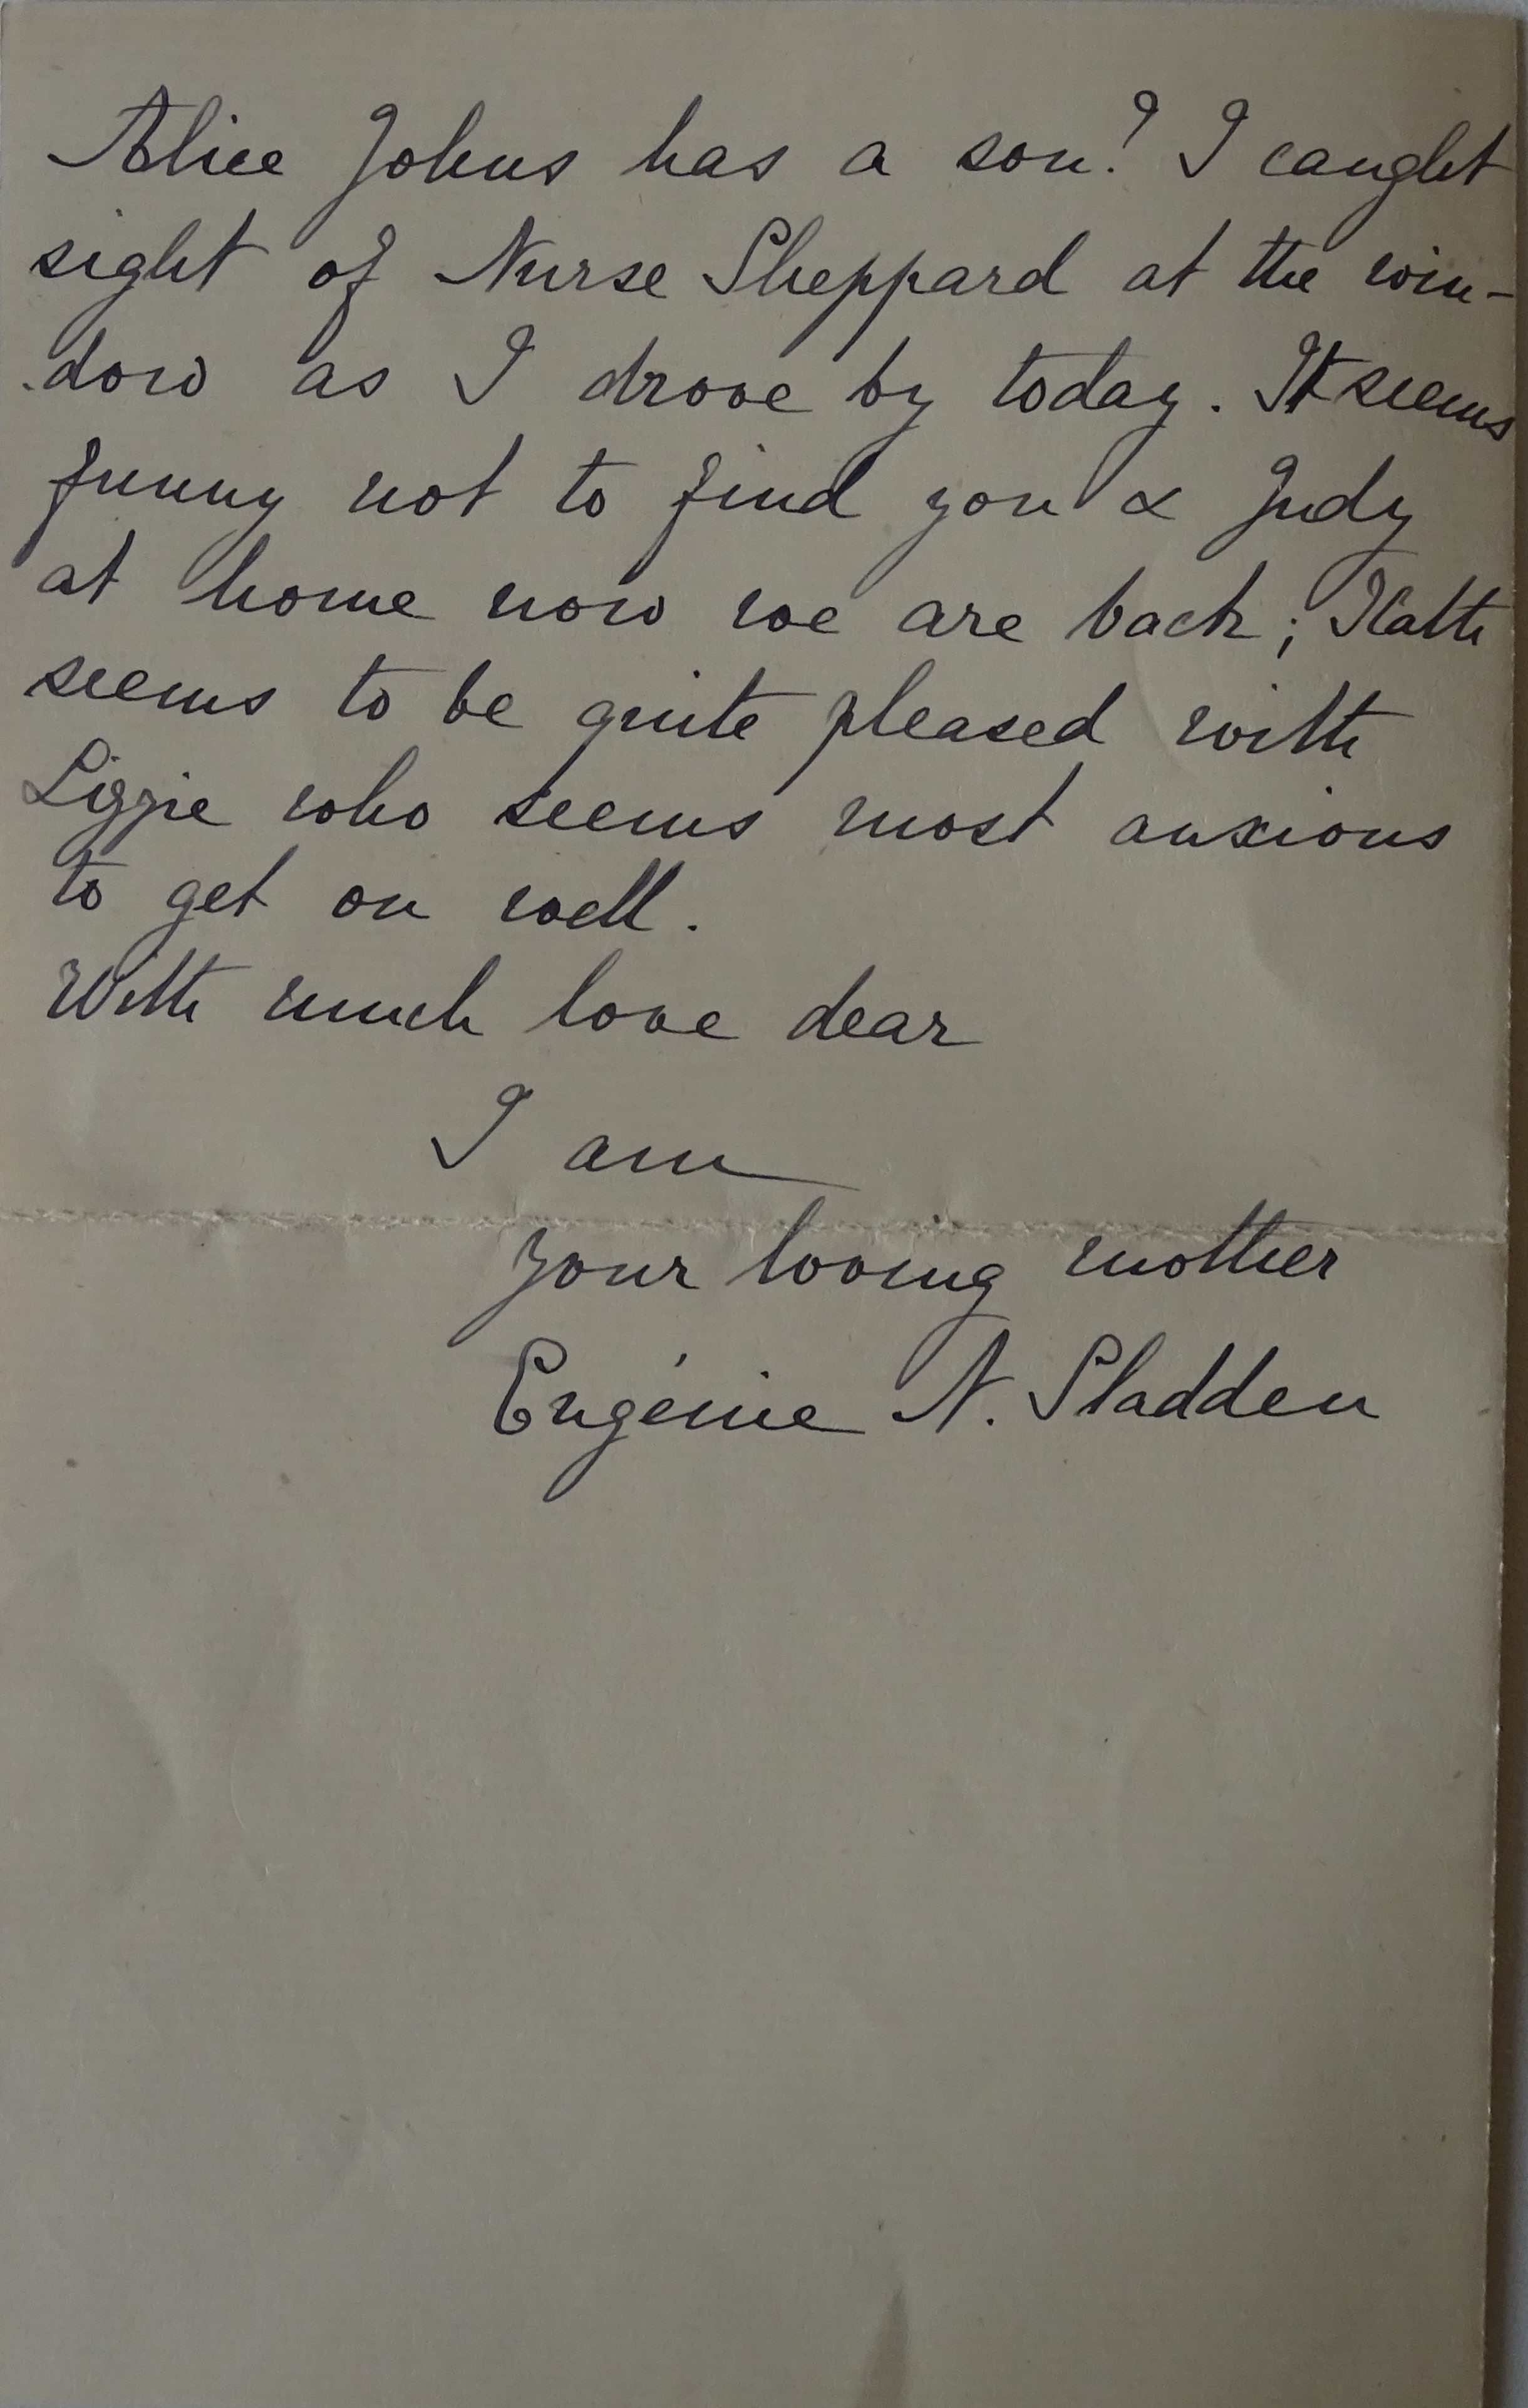 Alice Johns has a son? I caught
sight of Nurse Sheppard at the win-
dow as I drove by today. It seems
funny not to find you & Judy
at home now we are back; Kath
seems to be quite pleased with
Lizzie who seems most anxious
to get on well.
With much love dear
I am
your loving mother
Eugénie N. Sladden